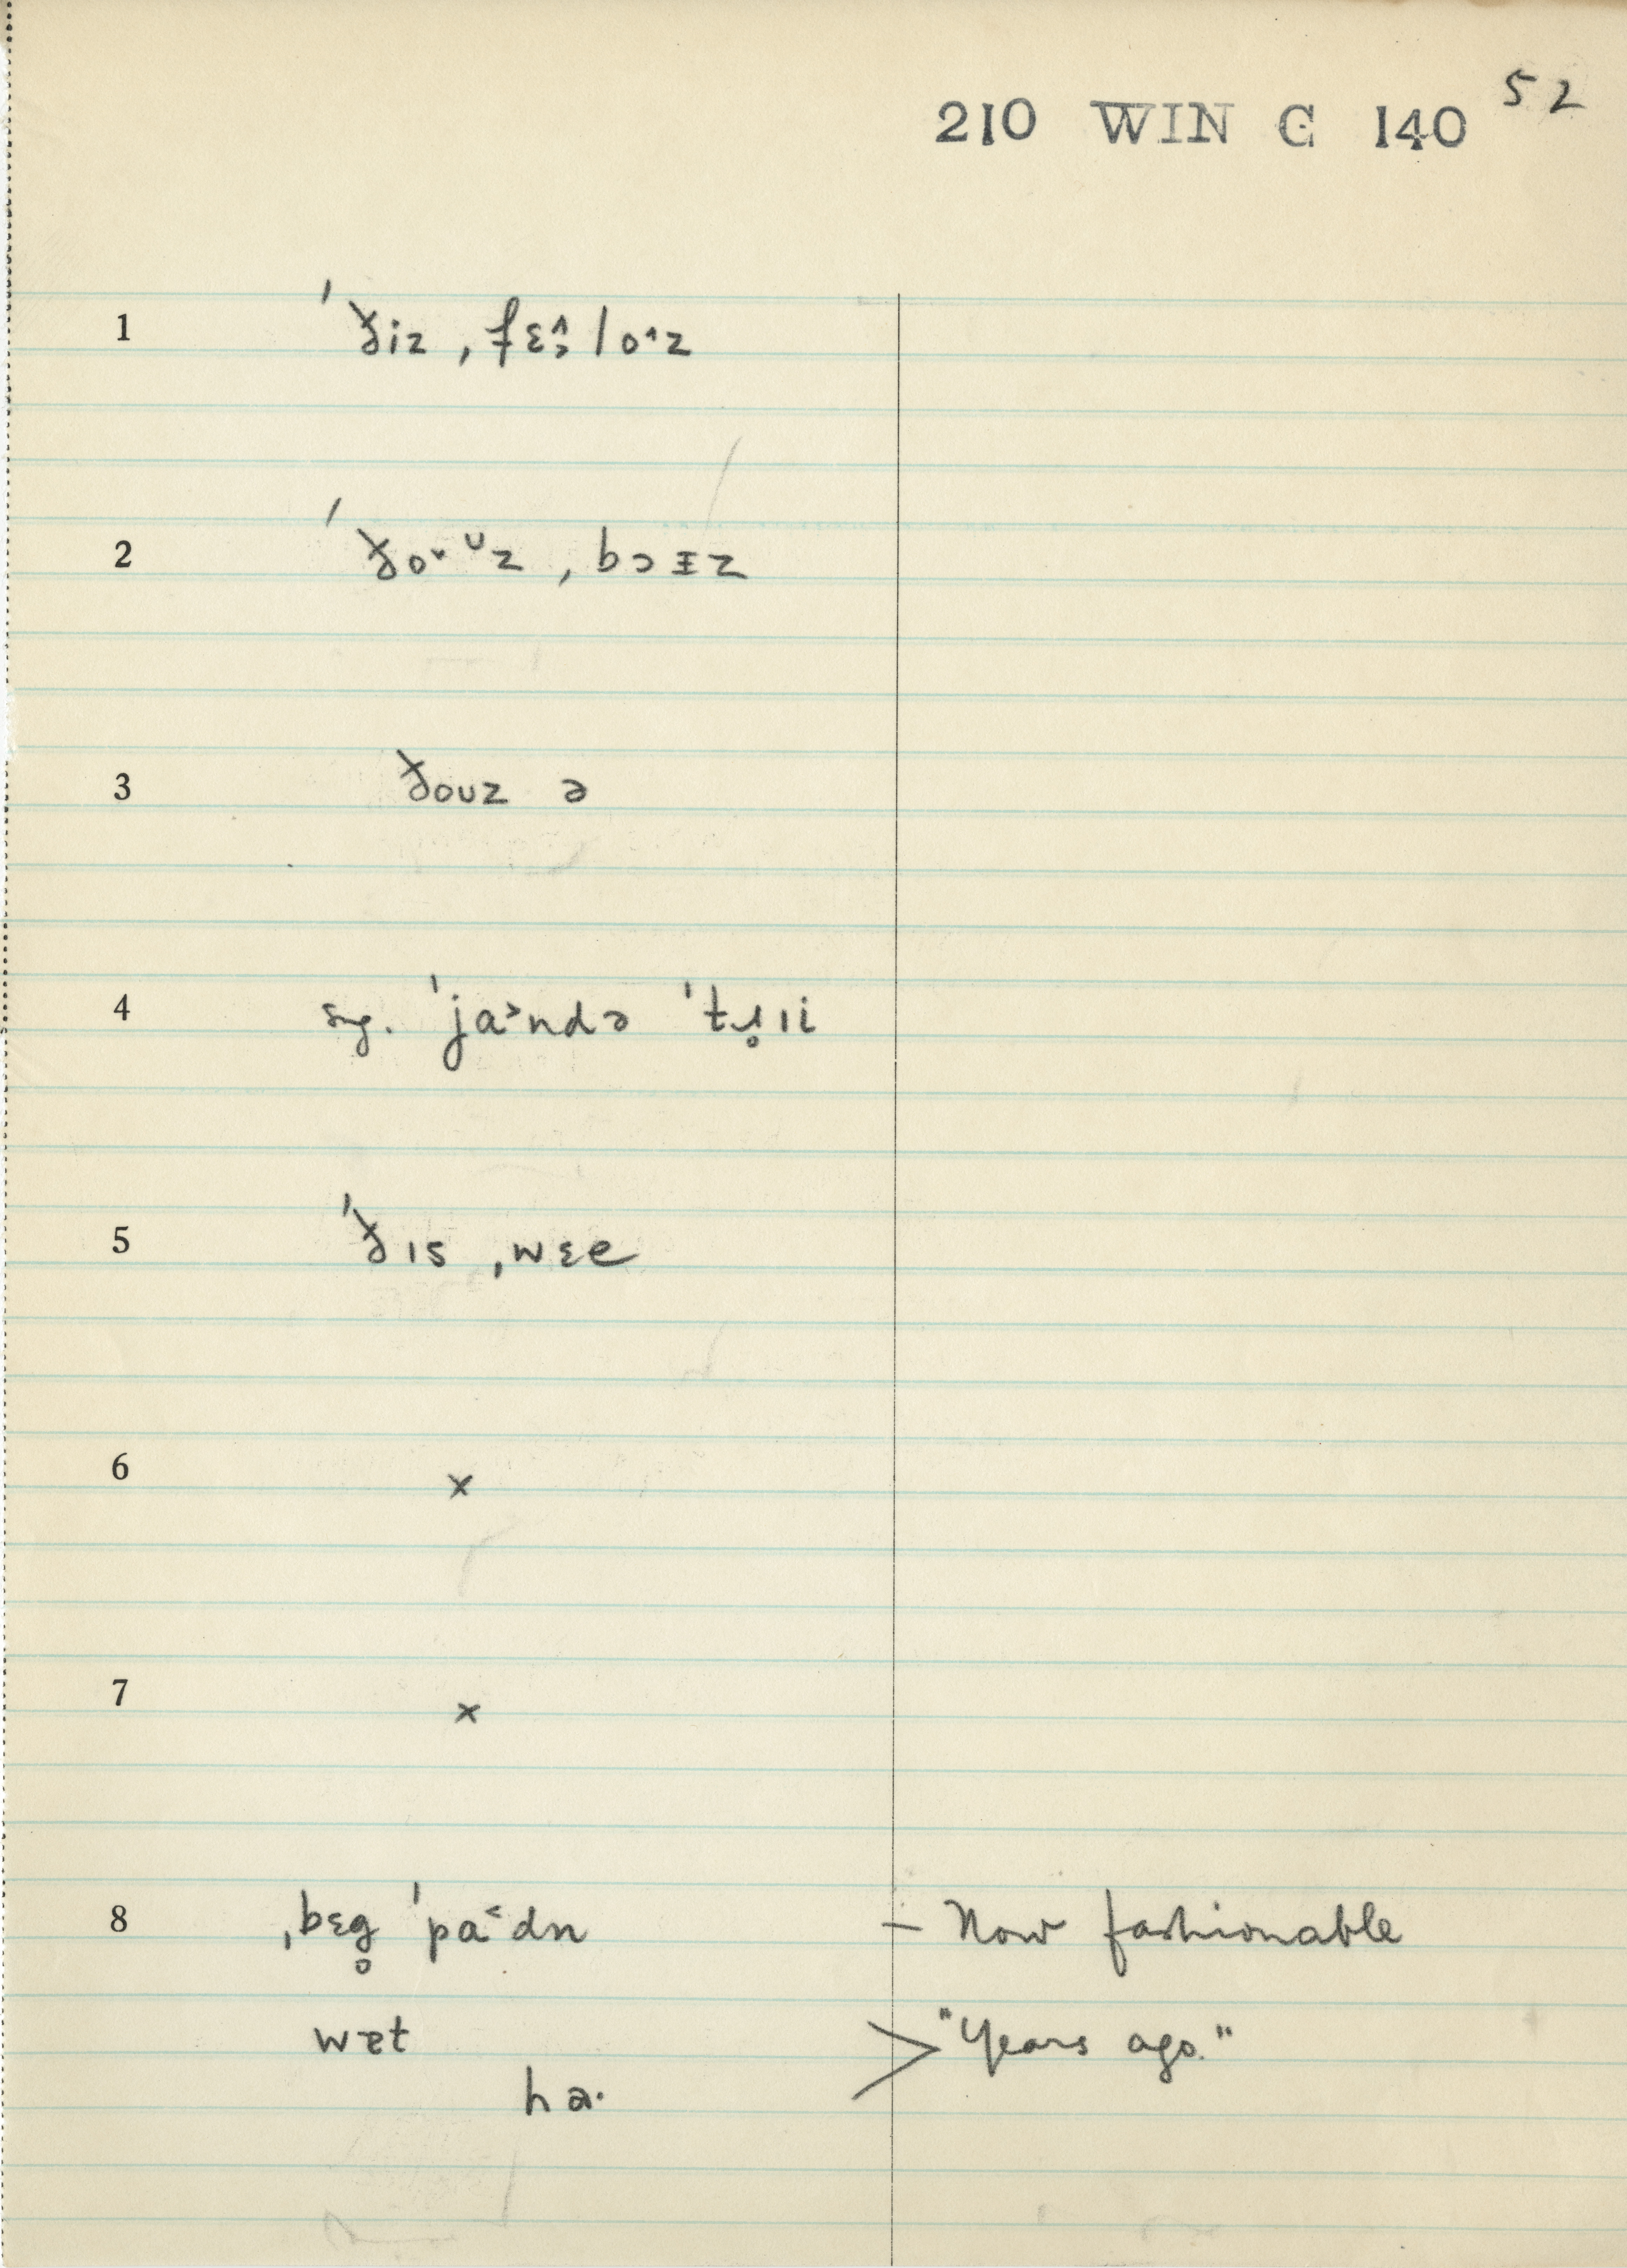 210 WIN C 140 52
1 ˈðiz ˌfɛ̭˃loˆz
2 ˈðo˅ᶷz ˌbɔɪz
3 ðoʊz ə
4 sg. ˈja˃ndə ˈtɹ̥ɪi
5 ˈðɪs ˌwɛe
6 x
7 x
8 ˌbɛg̥ ˈpa˂dn – Now fashionable
wɐt > "Years ago."
ha·